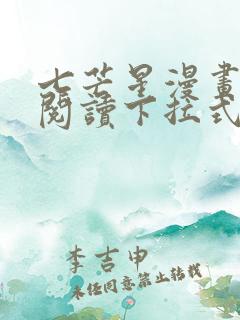 七芒星漫畫
閱讀下拉式
李吉申
未经同意禁止转载